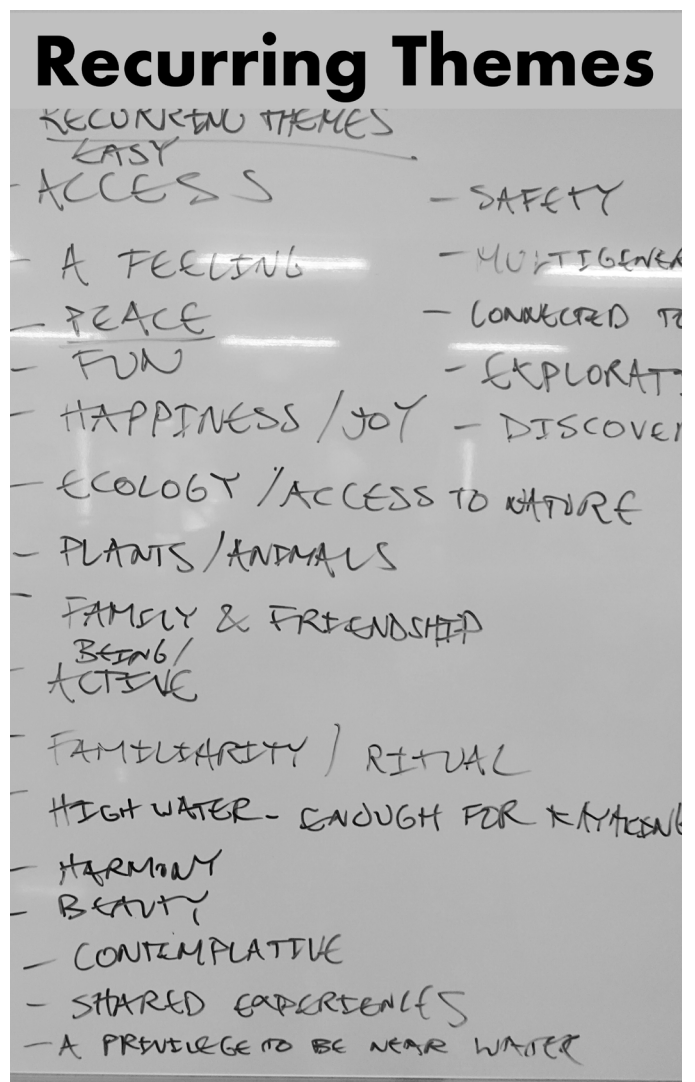 Recurring Themes
RECURRING THEMES
EASY
- ACCESS
- A FEELING
- PEACE
- FUN
- HAPPINESS / JOY
- ECOLOGY / ACCESS TO NATURE
- PLANTS / ANIMALS
- FAMILY & FRIENDSHIP
BEING /
- ACTIVE
- FAMILIARITY / RITUAL
- HIGH WATER - ENOUGH FOR KAYAKING
- HARMONY
- BEAUTY
- CONTEMPLATIVE
- SHARED EXPERIENCES
- A PRIVILEGE TO BE NEAR WATER
- SAFETY
- MULTIGENER
- CONNECTED TO
- EXPLORAT
- DISCOVER